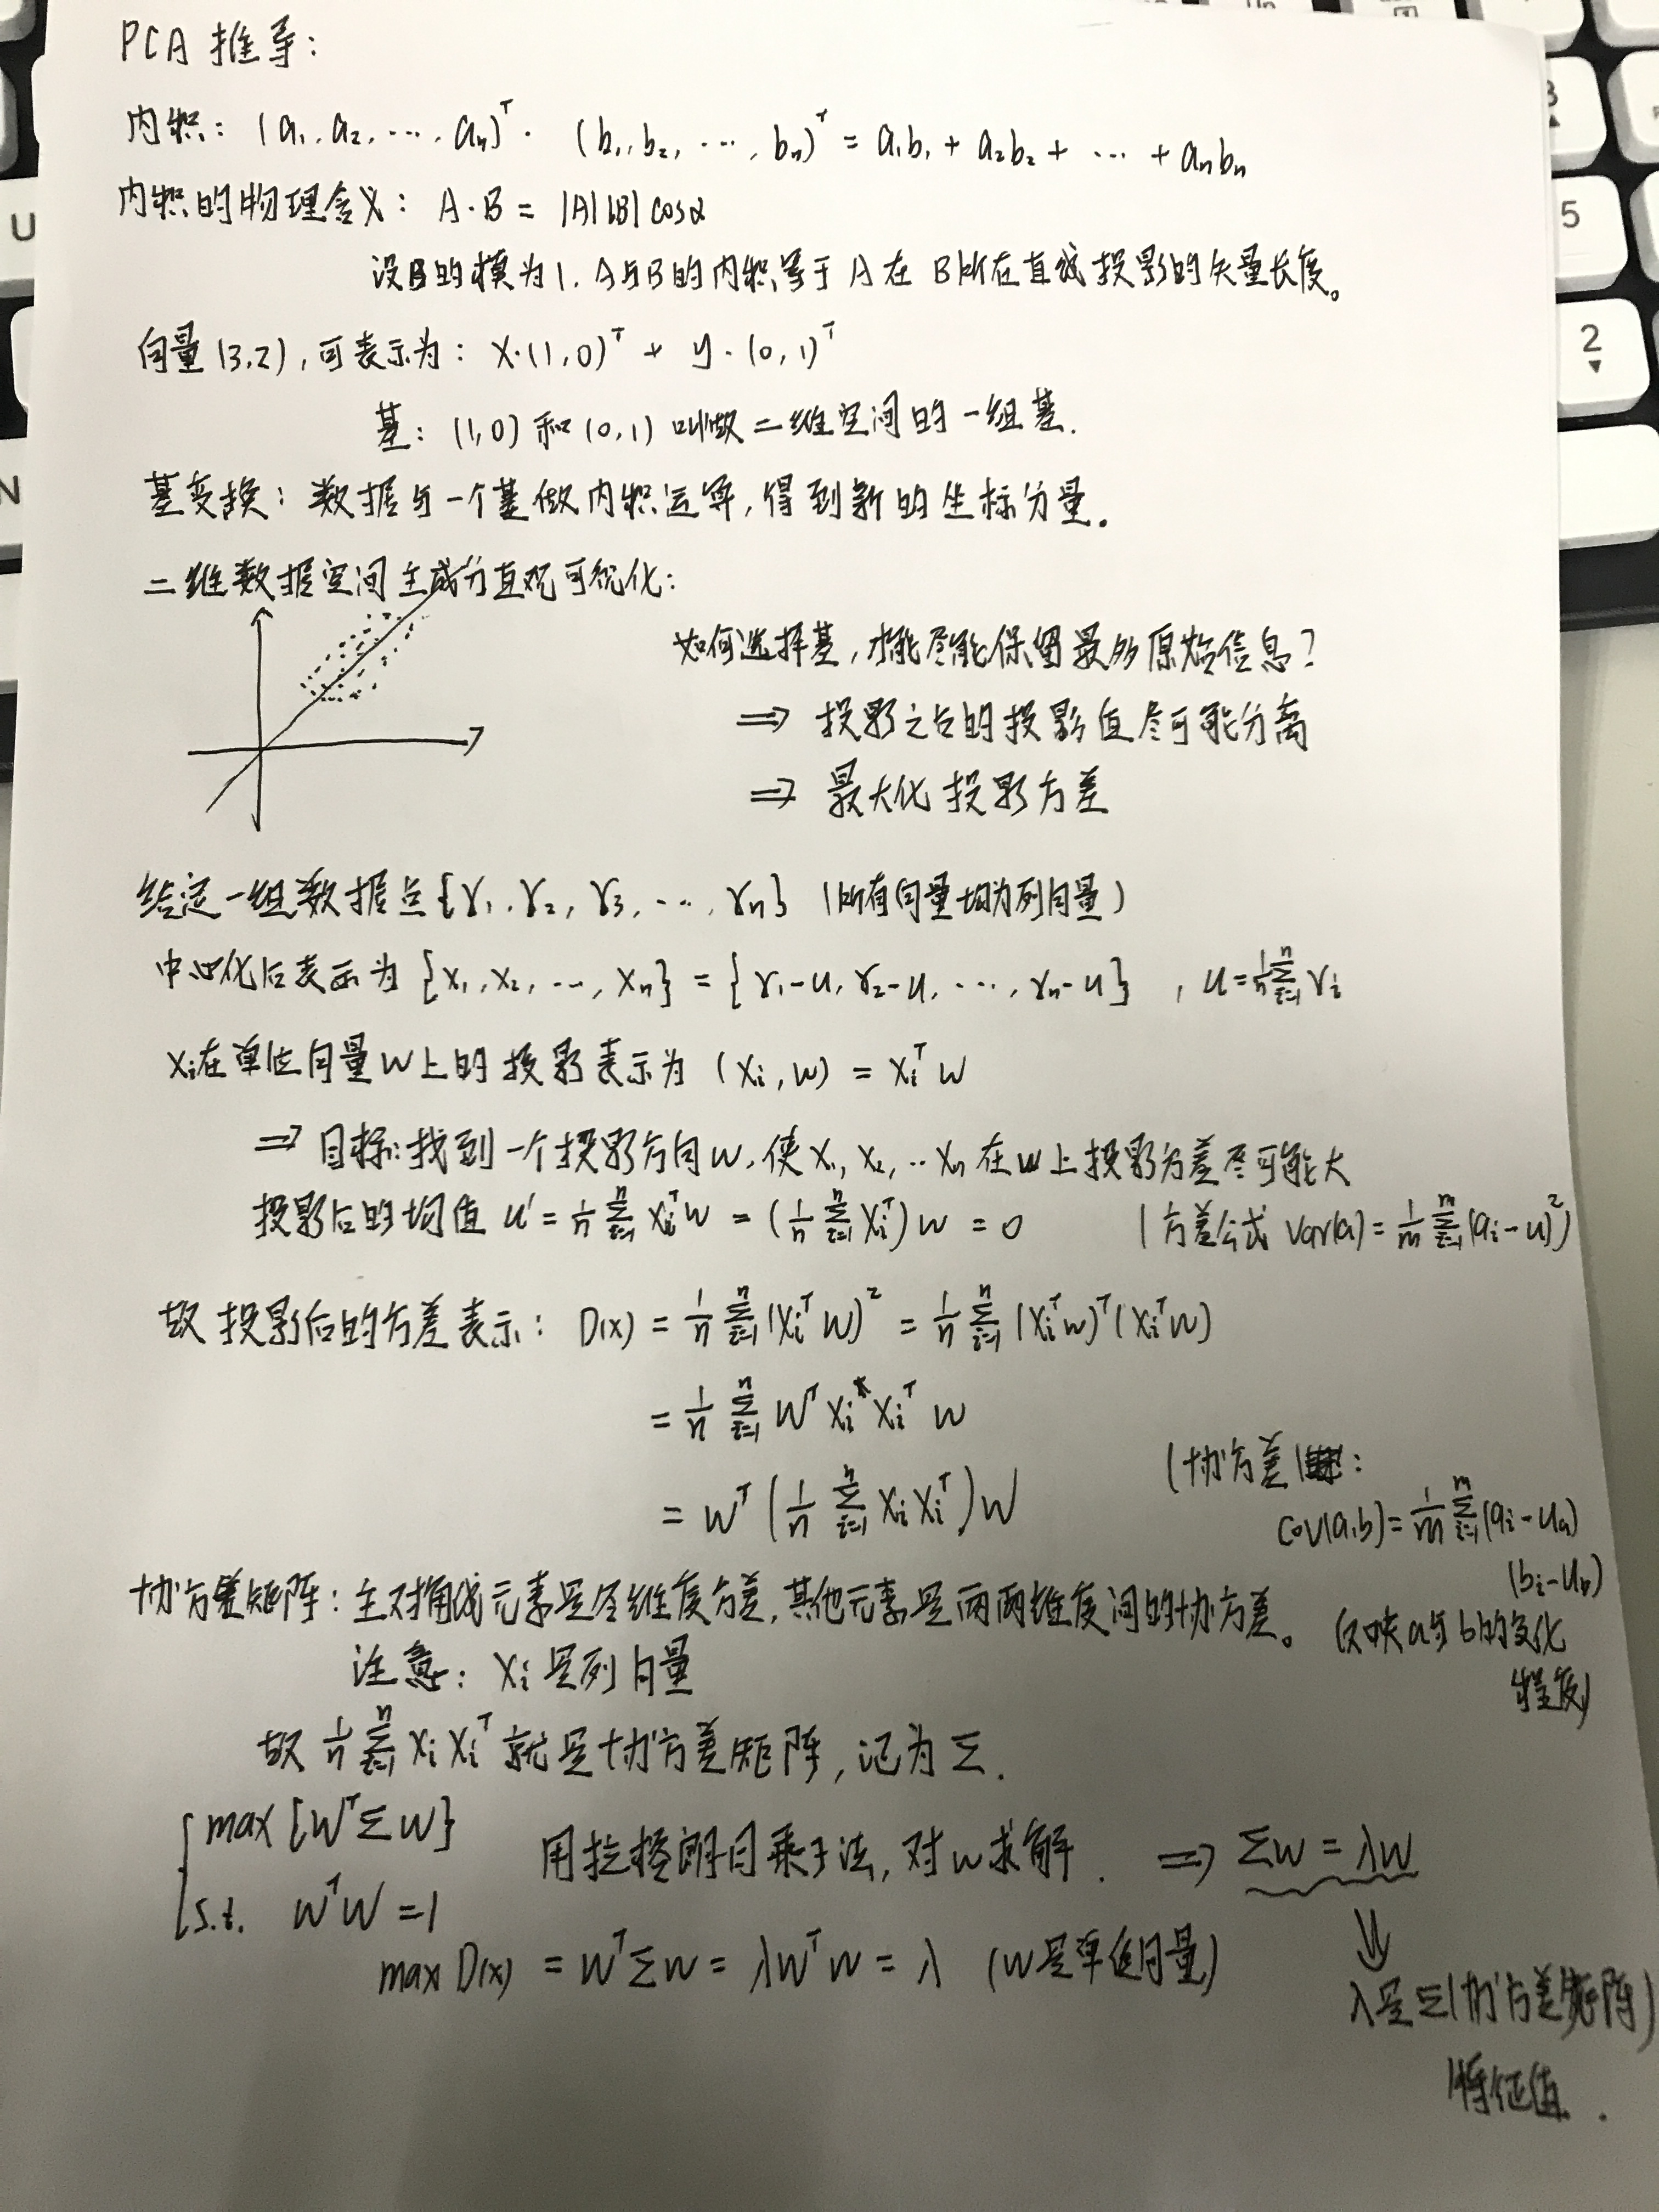 PCA 推导:
内积: (a₁, a₂, ..., aₙ)ᵀ · (b₁, b₂, ..., bₙ)ᵀ = a₁b₁ + a₂b₂ + ... + aₙbₙ
内积的物理含义: A·B = |A||B|cosα
设B的模为1, A与B的内积等于 A 在 B所在直线投影的矢量长度。
向量(3,2), 可表示为: x·(1,0)ᵀ + y·(0,1)ᵀ
基: (1,0) 和 (0,1) 叫做二维空间的一组基.
基变换: 数据与一个基做内积运算, 得到新的坐标分量。
二维数据空间主成分直观可视化:
如何选择基, 才能尽能保留最多原始信息?
⇒ 投影之后的投影值尽可能分离
⇒ 最大化投影方差
给定一组数据点{γ₁, γ₂, γ₃, ..., γₙ} (所有向量均为列向量)
中心化后表示为 {x₁, x₂, ..., xₙ} = {γ₁-u, γ₂-u, ..., γₙ-u} , u = 1/n Σⁿᵢ₌₁ γᵢ
xᵢ在单位向量w上的投影表示为 (xᵢ, w) = xᵢᵀ w
⇒ 目标: 找到一个投影方向w, 使 x₁, x₂, ..xₙ 在w上投影方差尽可能大
投影后的均值 u' = 1/n Σⁿᵢ₌₁ xᵢᵀw = (1/n Σⁿᵢ₌₁ xᵢᵀ) w = 0 (方差公式 var(a) = 1/m Σᵐᵢ₌₁ (aᵢ-u)²)
故投影后的方差表示: D(x) = 1/n Σⁿᵢ₌₁ (xᵢᵀ w)² = 1/n Σⁿᵢ₌₁ (xᵢᵀw)ᵀ(xᵢᵀw)
= 1/n Σⁿᵢ₌₁ wᵀ xᵢ xᵢᵀ w
= wᵀ (1/n Σⁿᵢ₌₁ xᵢxᵢᵀ) w
(协方差:
cov(a,b) = 1/m Σᵐᵢ₌₁ (aᵢ-uₐ)
(bᵢ-u_b)
反映a与b的变化
程度)
协方差矩阵: 主对角线元素是各维度方差, 其他元素是两两维度间的协方差。
注意: xᵢ是列向量
故 1/n Σⁿᵢ₌₁ xᵢxᵢᵀ 就是协方差矩阵, 记为Σ.
max {wᵀΣw}
s.t. wᵀw = 1
用拉格朗日乘子法, 对w求解. ⇒ Σw = λw
max D(x) = wᵀΣw = λwᵀw = λ (w是单位向量)
⇓
λ是Σ(协方差矩阵)
特征值.